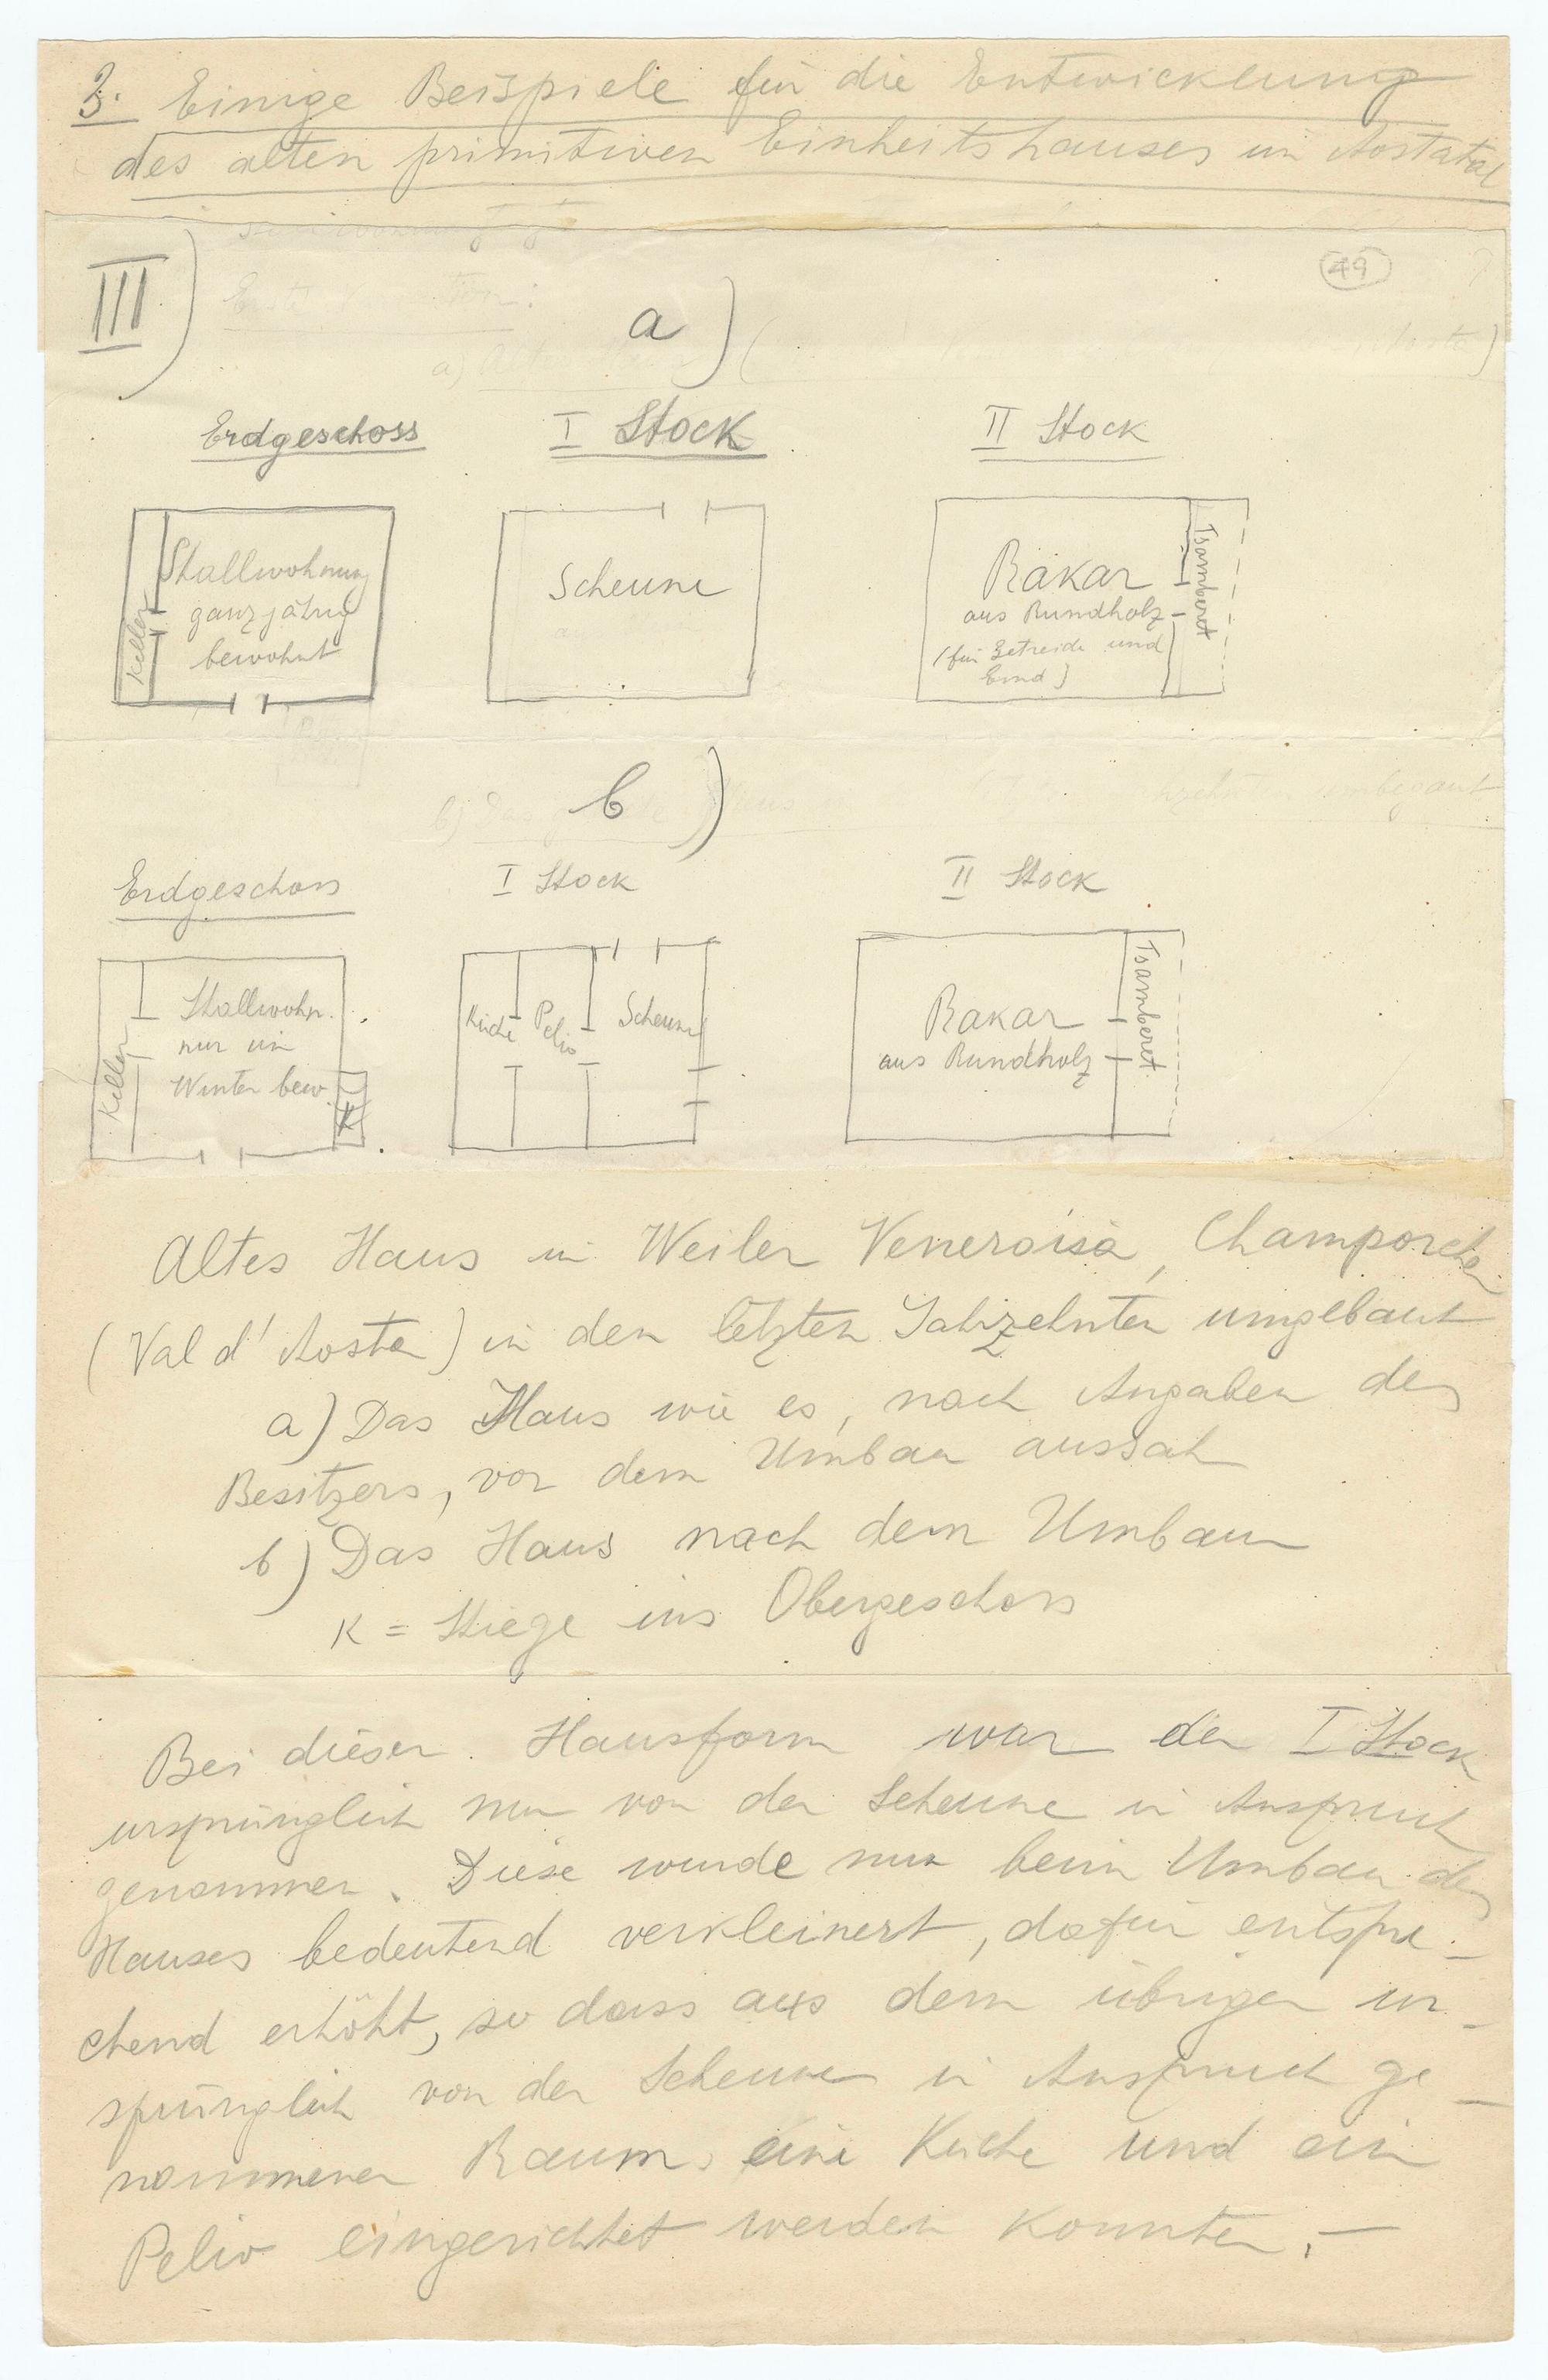 3. Einige Beispiele für die Entwicklung
des alten primitiven Einheitshauses im Aostatal
III)
49
a)
Erdgeschoss
I Stock
II Stock
Stallwohnung
ganzjährig
bewohnt
Keller
Scheune
Rakar
aus Rundholz
(für Getreide und
Emd)
Tsamberet
b)
Erdgeschoss
I Stock
II Stock
Stallwohn.
nur im
Winter bew.
Keller
K
Küche
Pelio
Scheune
Rakar
aus Rundholz
Tsamberet
Altes Haus im Weiler Veneroisa, Champorcher
(Val d'Aosta) in den letzten Jahrzehnten umgebaut
a) Das Haus wie es, nach Angaben des
Besitzers, vor dem Umbau aussah
b) Das Haus nach dem Umbau
K = Stiege ins Obergeschoss
Bei dieser Hausform war der I Stock
ursprünglich nur von der Scheune in Anspruch
genommen. Diese wurde nun beim Umbau des
Hauses bedeutend verkleinert, dafür entspre-
chend erhöht, so dass aus dem übrigen ur-
sprünglich von der Scheune in Anspruch ge-
nommenen Raum, eine Küche und ein
Pelio eingerichtet werden konnten. —